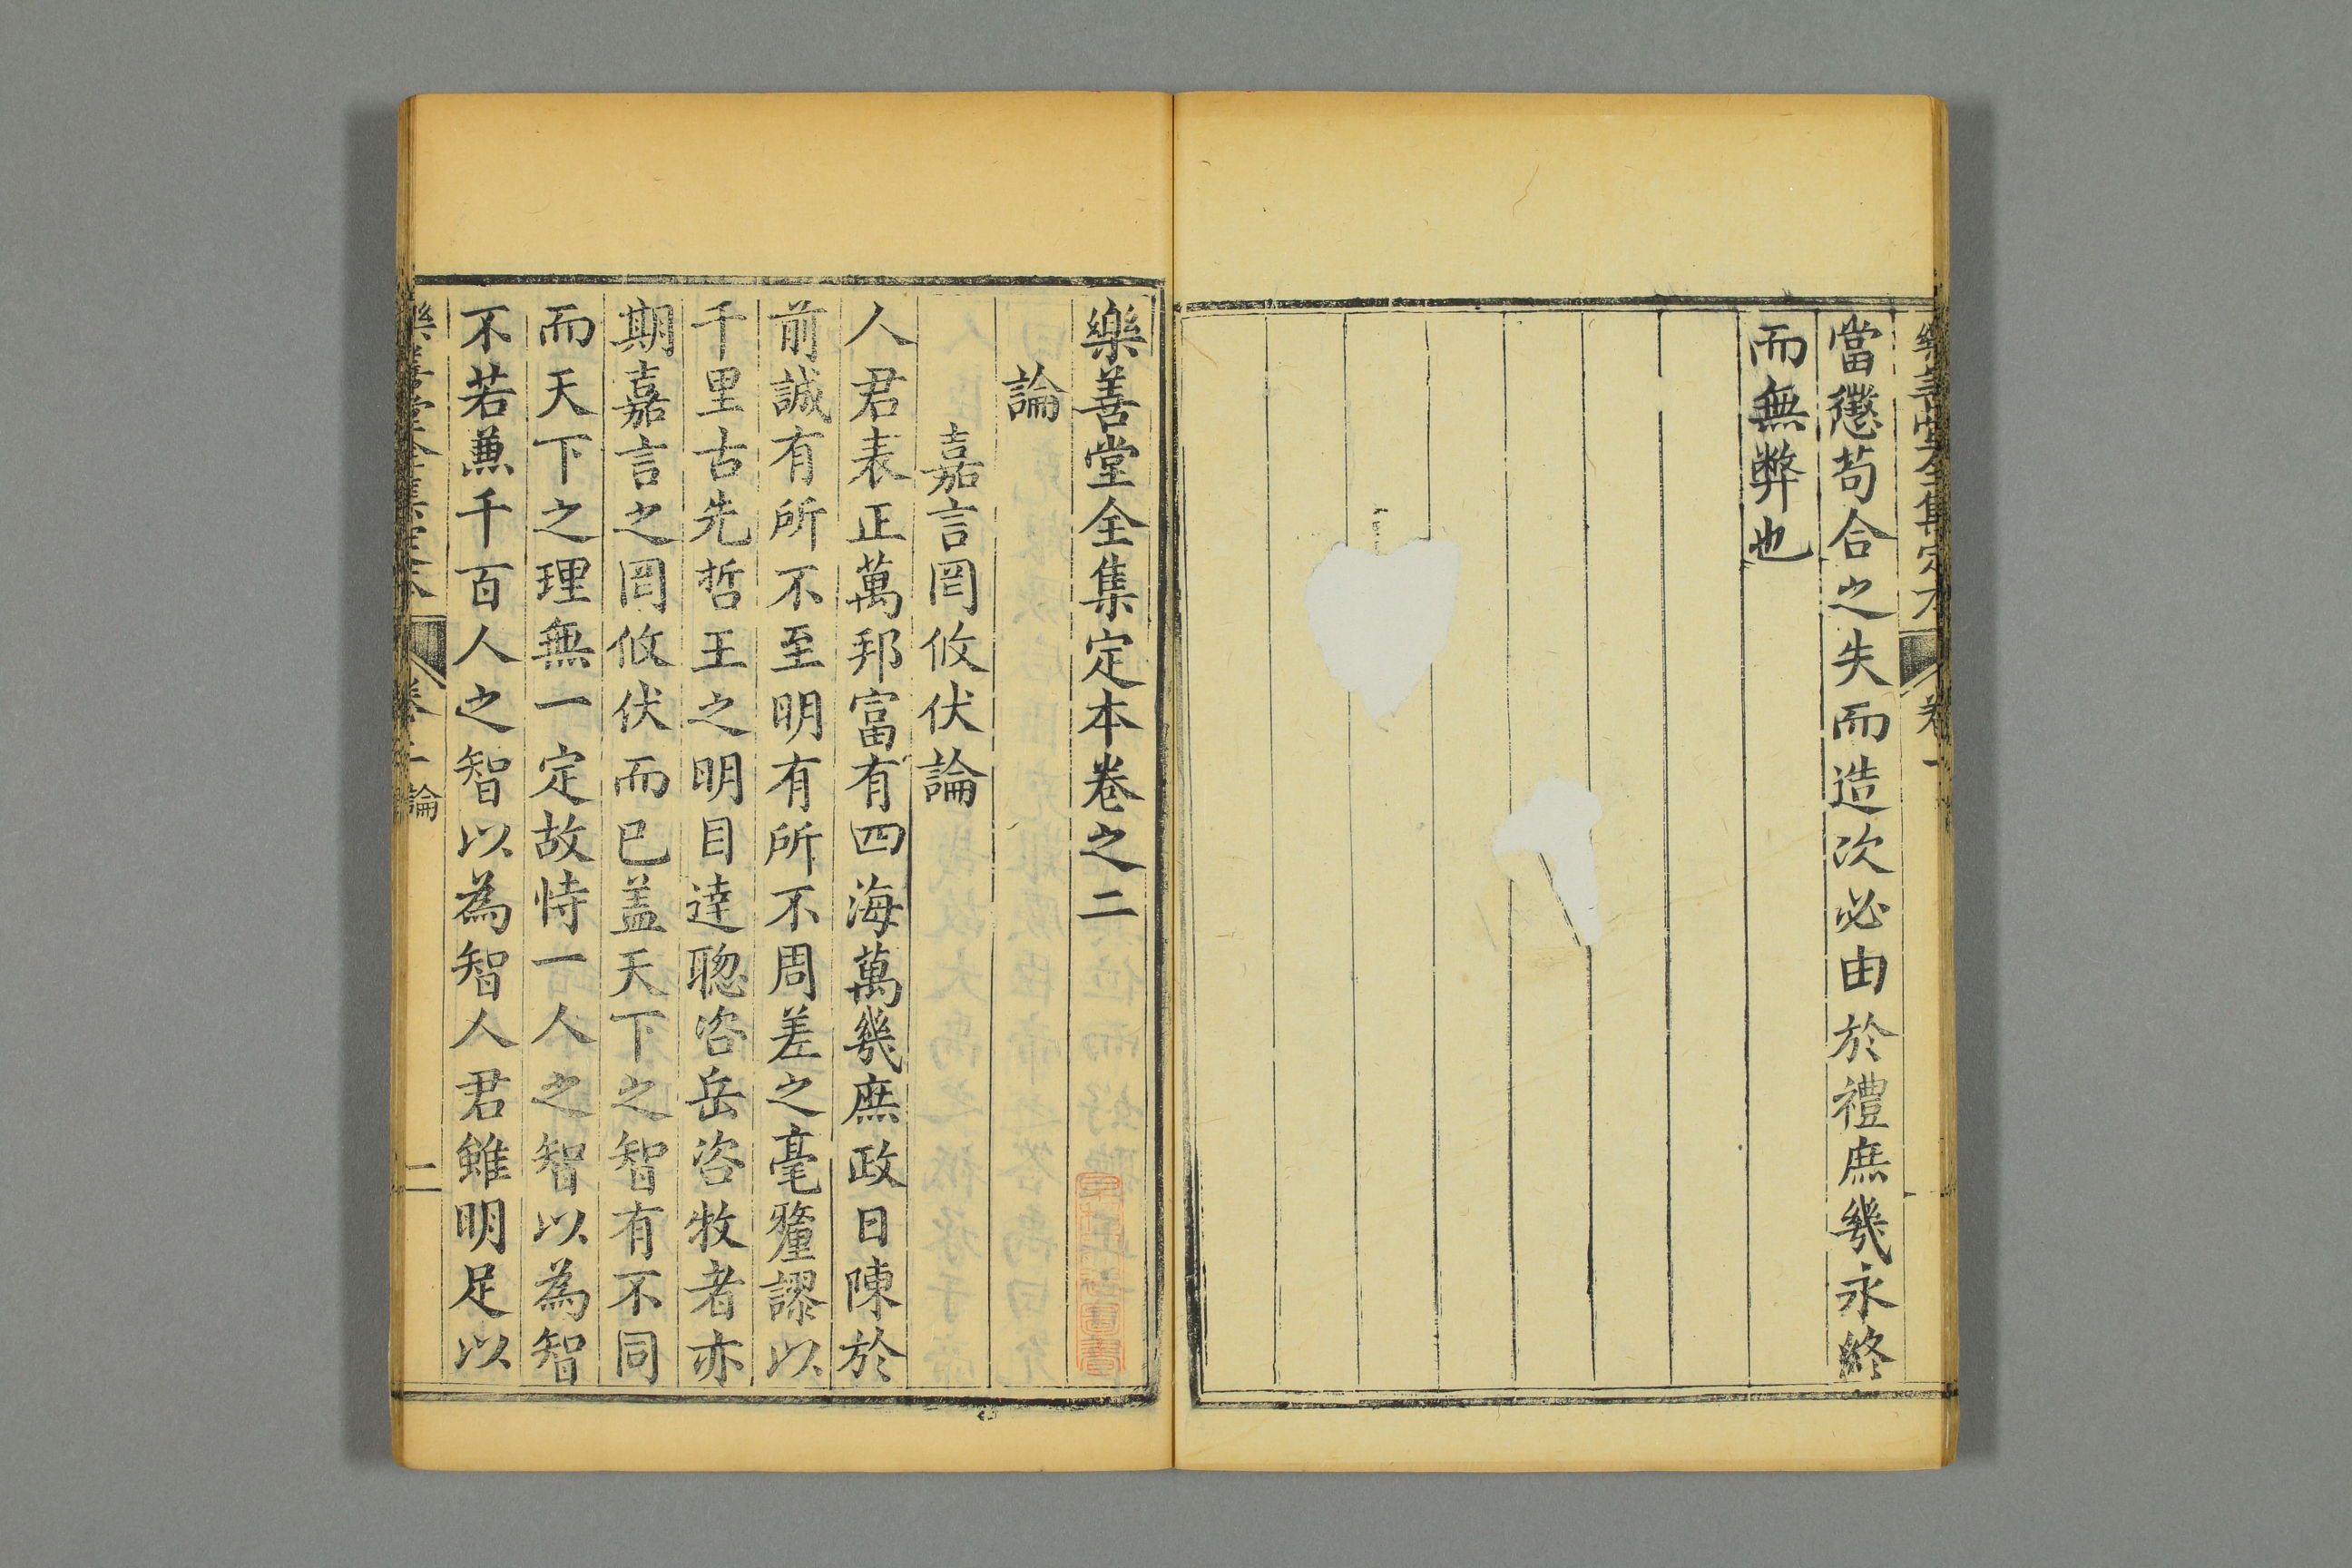 樂善堂全集定本
卷一
當懲苟合之失而造次必由於禮庶幾永終
而無弊也
樂善堂全集定本卷之二
論
嘉言罔攸伏論
人君表正萬邦富有四海萬幾庶政日陳於
前誠有所不至明有所不周差之毫釐謬以
千里古先哲王之明目達聰咨岳咨牧者亦
期嘉言之罔攸伏而已盖天下之智有不同
而天下之理無一定故恃一人之智以為智
不若兼千百人之智以為智人君雖明足以
樂善堂全集定本
卷二論
二